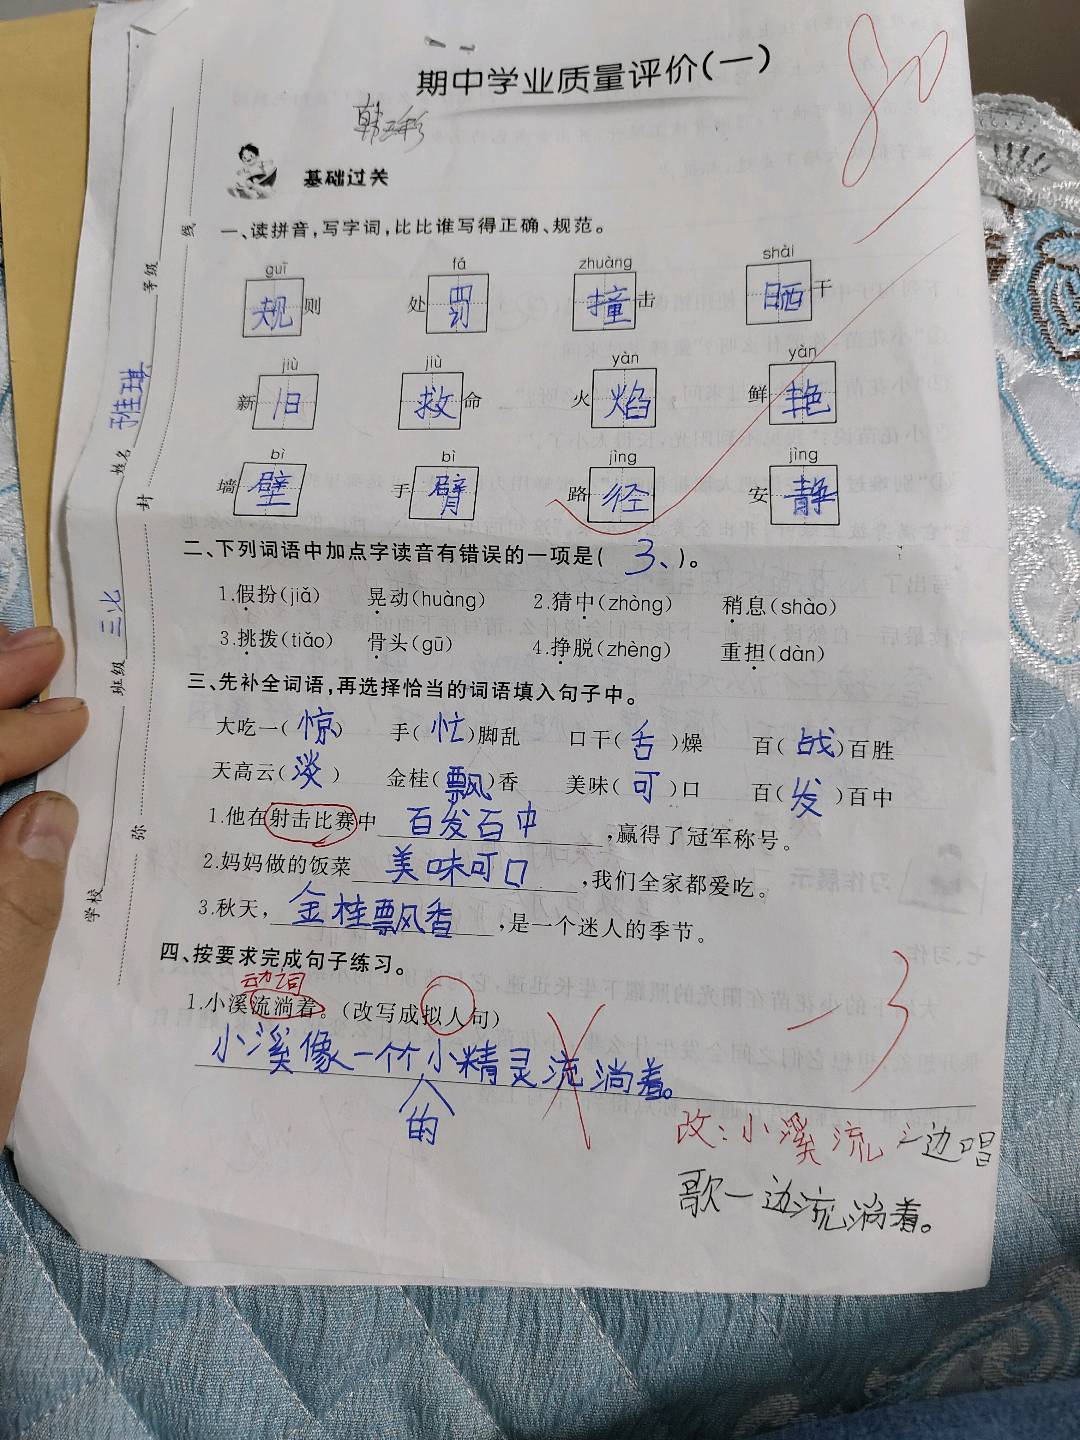 期中学业质量评价(一)
80
基础过关
一、读拼音,写字词,比比谁写得正确、规范。
guī fá zhuàng shài
规则 处罚 撞击 晒干
jiù jiù yàn yàn
新旧 救命 火焰 鲜艳
bì bì jìng jìng
墙壁 手臂 路径 安静
二、下列词语中加点字读音有错误的一项是( 3、 )。
1.假扮(jiǎ) 晃动(huàng) 2.猜中(zhòng) 稍息(shào)
3.挑拨(tiǎo) 骨头(gū) 4.挣脱(zhèng) 重担(dàn)
三、先补全词语,再选择恰当的词语填入句子中。
大吃一(惊) 手(忙)脚乱 口干(舌)燥 百(战)百胜
天高云(淡) 金桂(飘)香 美味(可)口 百(发)百中
1.他在射击比赛中百发百中,赢得了冠军称号。
2.妈妈做的饭菜美味可口,我们全家都爱吃。
3.秋天,金桂飘香,是一个迷人的季节。
四、按要求完成句子练习。
动词
1.小溪流淌着。(改写成拟人句)
-3
小溪像一个小精灵流淌着。
的
改:小溪流一边唱
歌一边流淌着。
学校 班级 三北 姓名 等级
弥 封 线